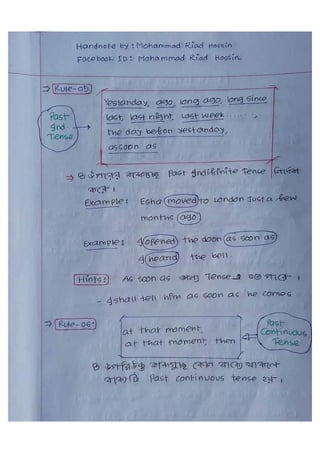 Handnote by : Mohammad Riad Hossin
Facebook ID : Mohammad Riad Hossin
⇒ Rule-05
Yestarday, ago, long ago, long since
last, last night, last week......,
the day before yestarday,
assoon as
Past
Ind
Tense
⇒ উপরের Past Indifinite Tense নির্দেশ
করে।
Example: Esha moved to London Just a few
months ago.
Example: I opened the door as soon as
I heard the bell.
Hints: As soon as অন্য Tense এ হতে পারে।
- I shall tell him as soon as he comes
⇒ Rule-06:
at that moment,
at that moment, then
Past
Continuous
Tense
কোন বাক্যে থাকলে
বাক্যটি Past continuous tense হয়।